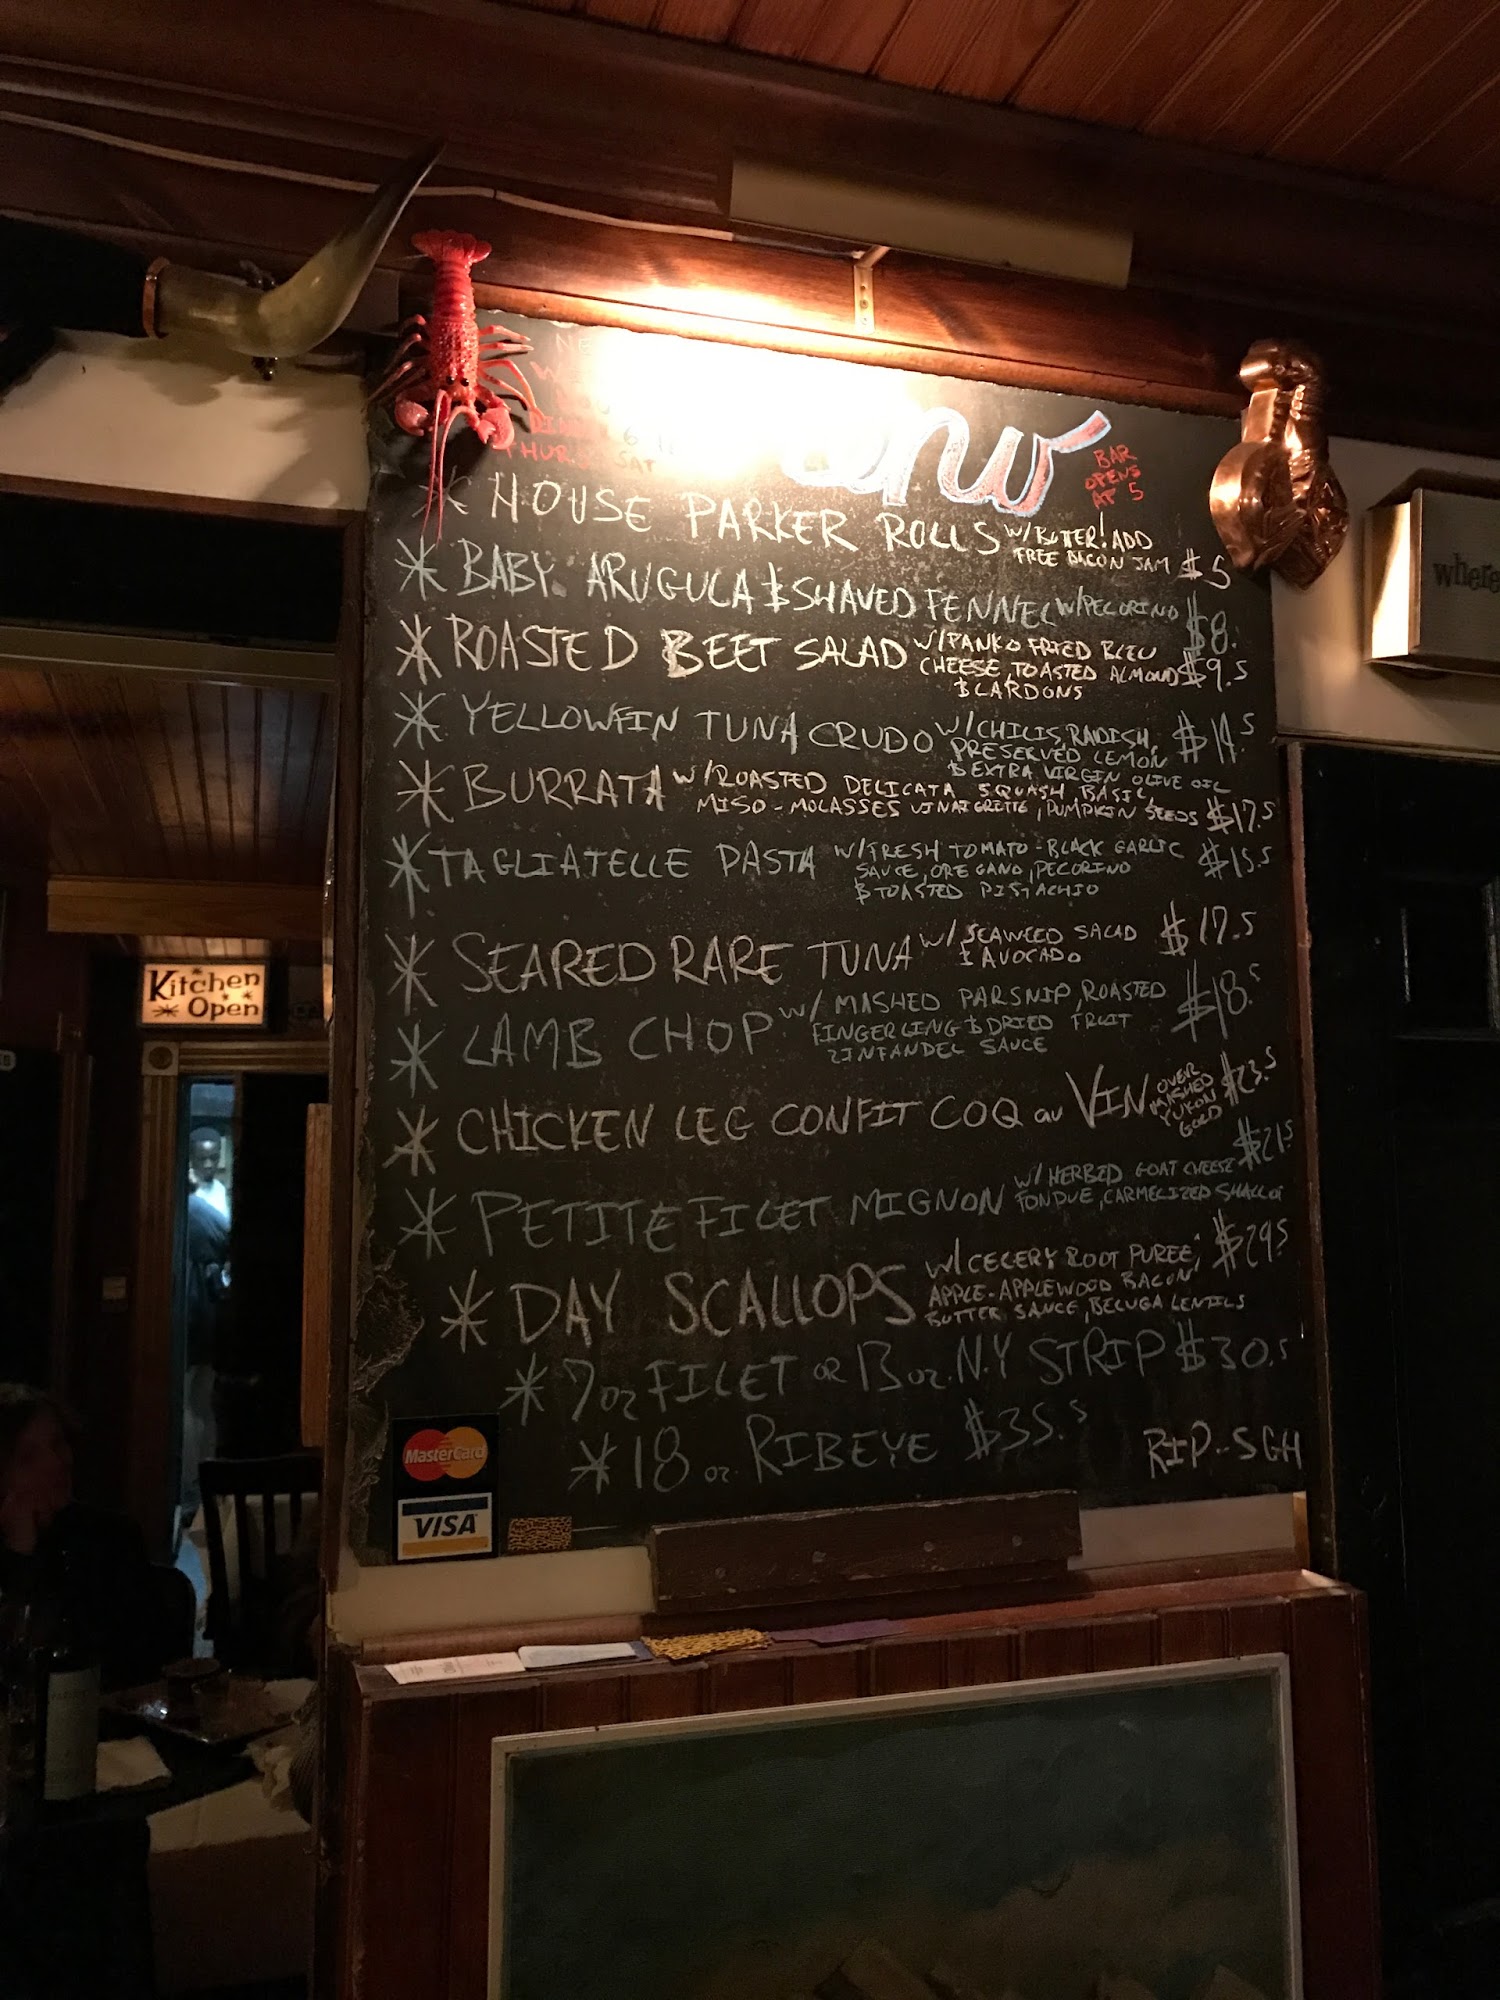 NE
W
DIN 6
THURS SAT
Menu
BAR
OPENS
AT 5
* HOUSE PARKER ROLLS W/BUTTER! ADD
FREE BACON JAM $5
* BABY ARUGULA & SHAVED FENNEL W/PECORINO $8.
* ROASTED BEET SALAD W/PANKO FRIED BLEU
CHEESE, TOASTED ALMOND $9.5
& LARDONS
* YELLOWFIN TUNA CRUDO W/CHILIS, RADISH,
PRESERVED LEMON $14.5
& EXTRA VIRGIN OLIVE OIL
* BURRATA W/ROASTED DELICATA SQUASH BASIL,
MISO-MOLASSES VINAIGRETTE, PUMPKIN SEEDS $17.5
* TAGLIATELLE PASTA W/FRESH TOMATO-BLACK GARLIC $15.5
SAUCE, OREGANO, PECORINO
& TOASTED PISTACHIO
* SEARED RARE TUNA W/SEAWEED SALAD $17.5
& AVOCADO
* LAMB CHOP W/ MASHED PARSNIP, ROASTED $18.5
FINGERLING & DRIED FRUIT
ZINFANDEL SAUCE
* CHICKEN LEG CONFIT COQ au VIN OVER $23.5
MASHED
YUKON
GOLD
* PETITE FILET MIGNON W/HERBED GOAT CHEESE $21.5
FONDUE, CARMELIZED SHALLOT
* DAY SCALLOPS W/CELERY ROOT PUREE, $29.5
APPLE-APPLEWOOD BACON
BUTTER SAUCE, BELUGA LENTILS
* 7 oz FILET OR 13 oz. N.Y STRIP $30.5
* 18 oz. RIBEYE $35.5
RIP-SGH
MasterCard
VISA
Kitchen
Open
where